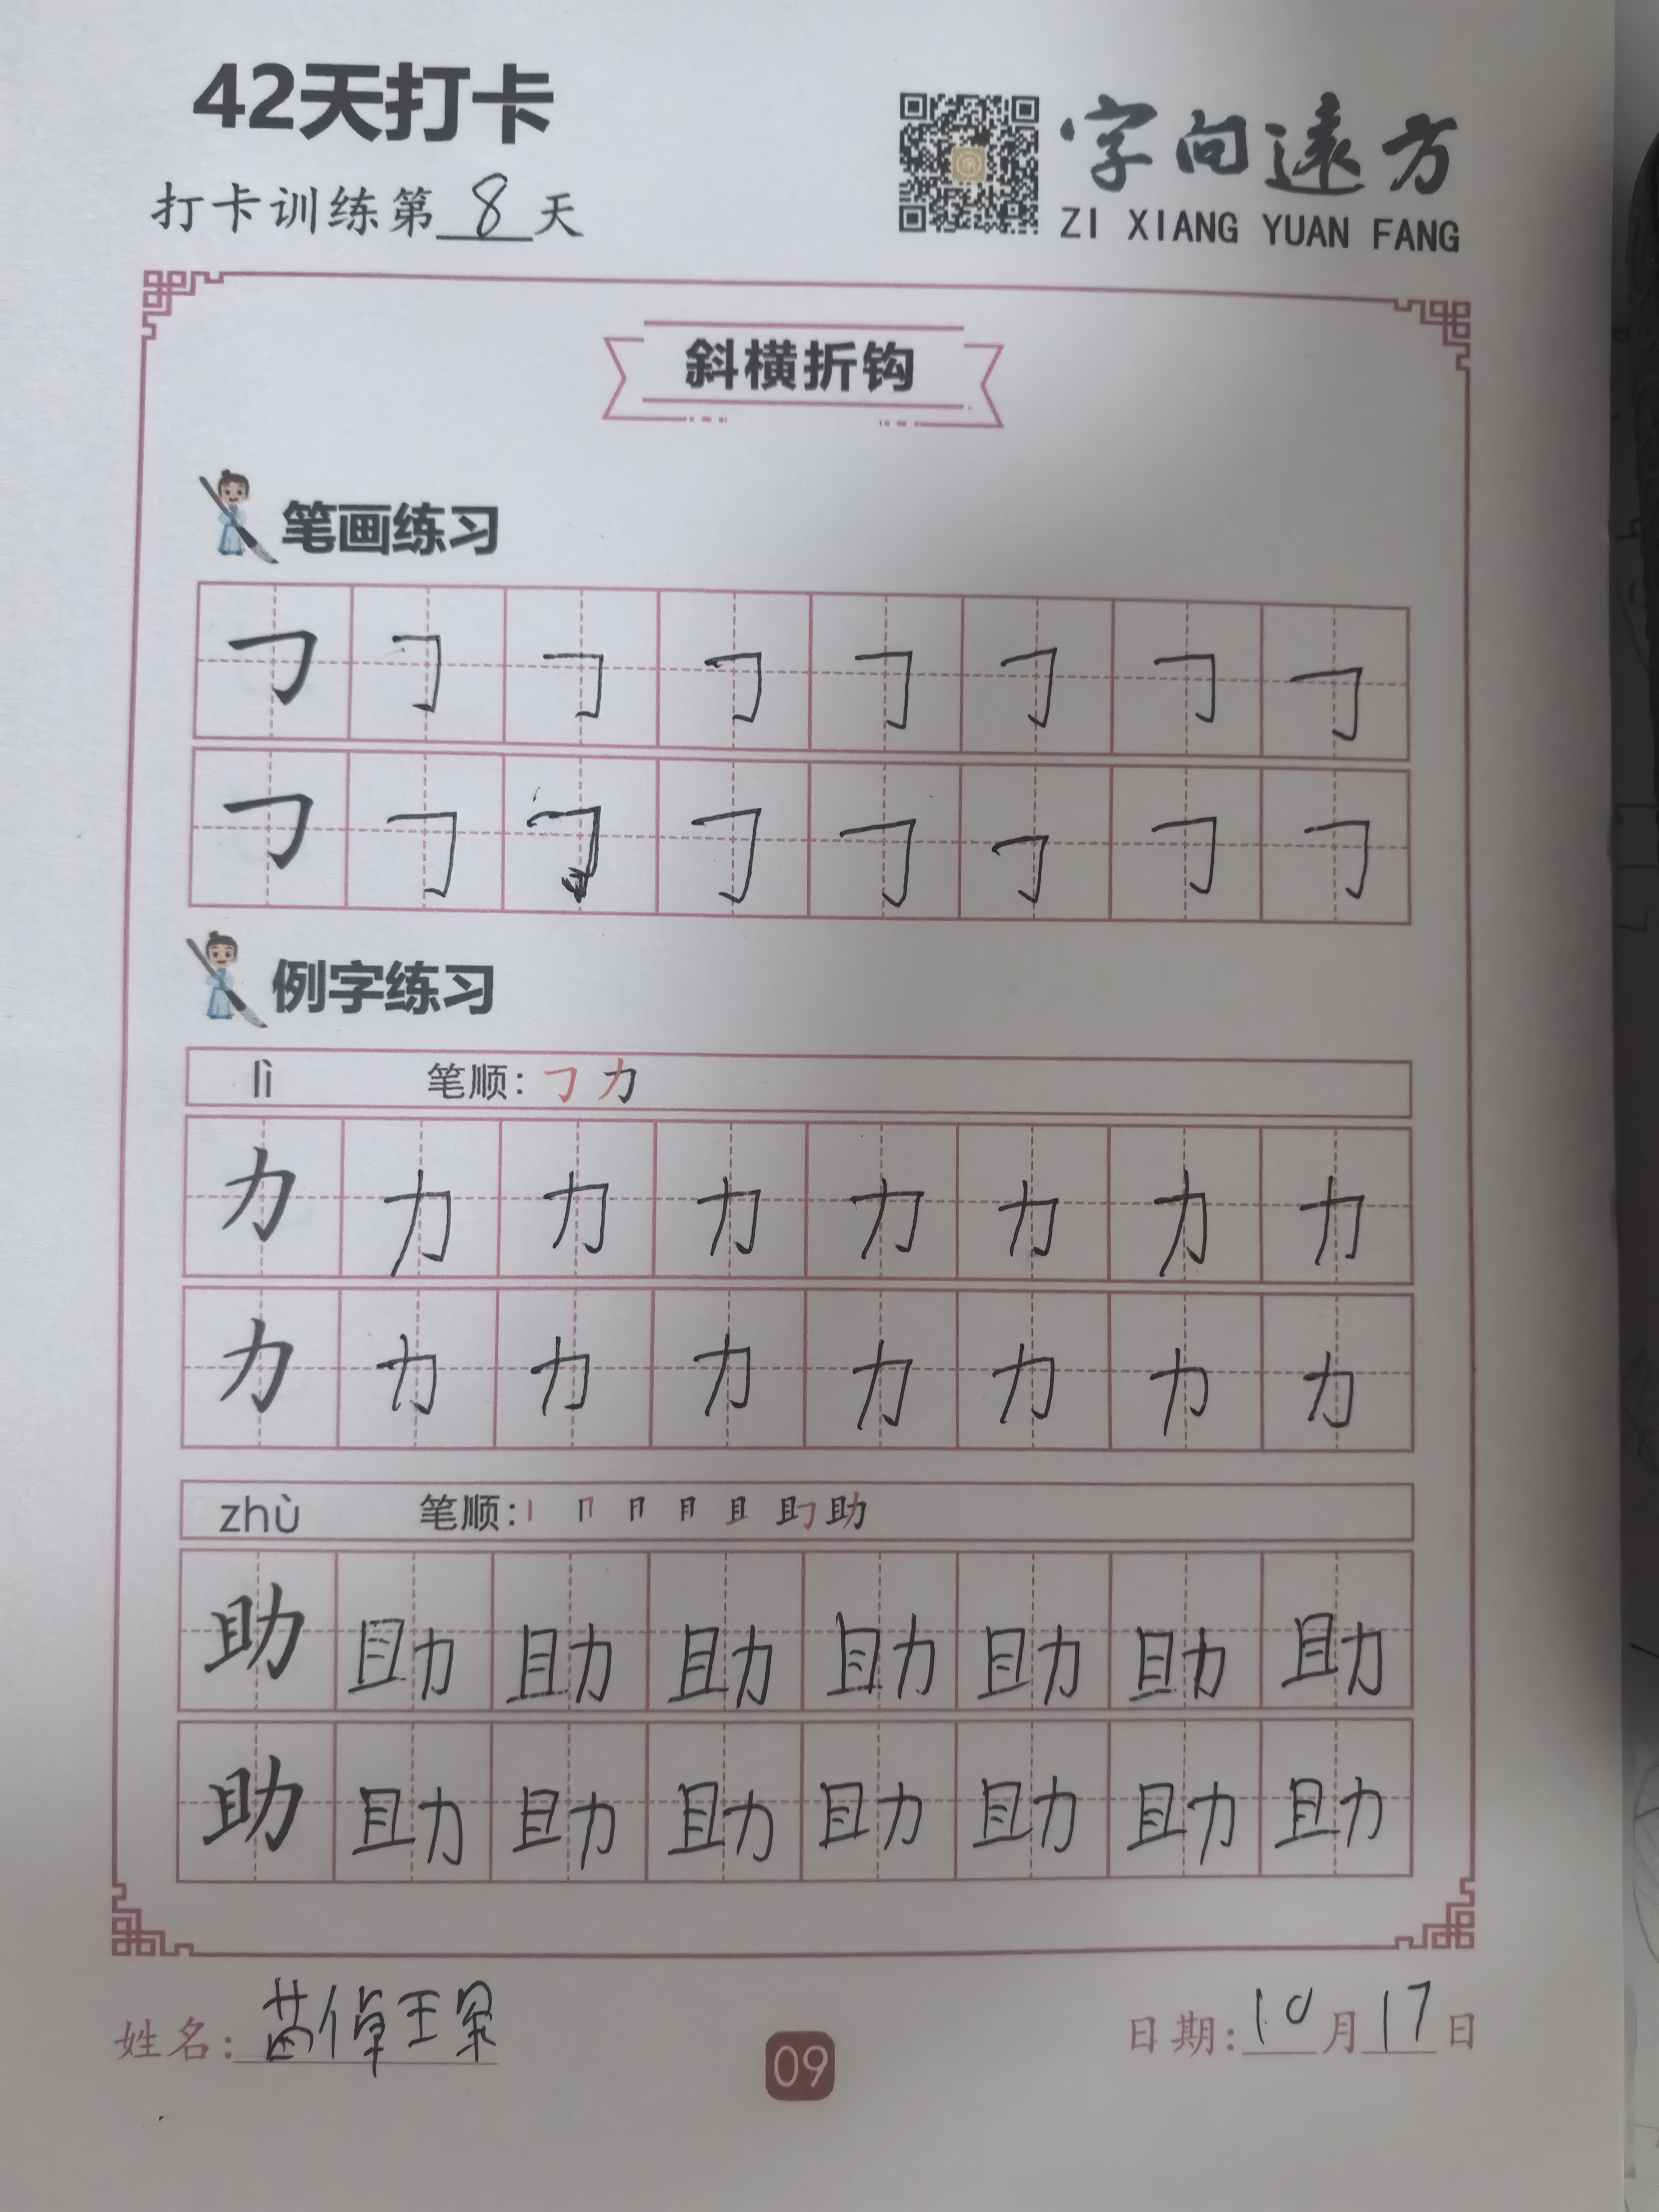 42天打卡
打卡训练第8天
字向遠方
ZI XIANG YUAN FANG
斜横折钩
笔画练习
例字练习
lì 笔顺: 力
力 力 力 力 力 力 力 力
力 力 力 力 力 力 力 力
zhù 笔顺: 丨 冂 月 月 且 助
助 助 助 助 助 助 助 助
助 助 助 助 助 助 助 助
姓名:
日期: 10月17日
09